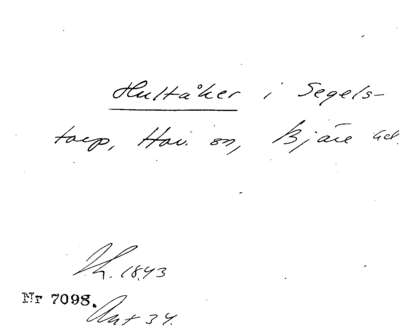 Hultåker i Segels-
torp, Hov. sn, Bjäre hd.
Lh. 1843
Nr 7098.
Ant 34.